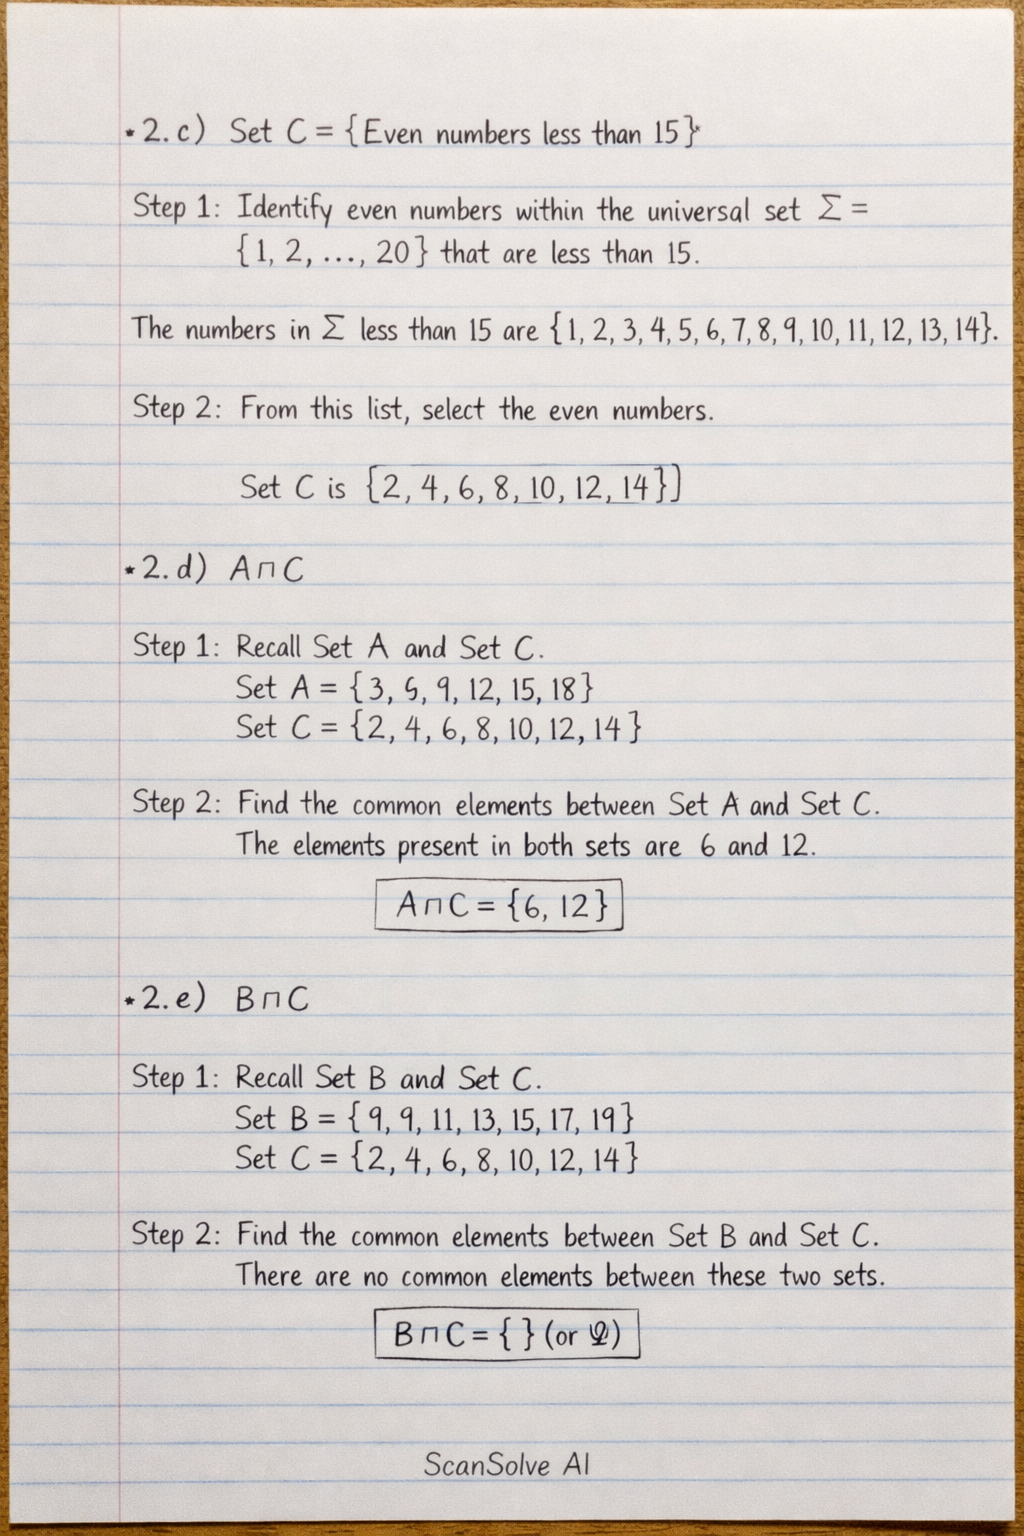 *2.c) Set C = {Even numbers less than 15}
Step 1: Identify even numbers within the universal set Σ =
{1, 2, ..., 20} that are less than 15.
The numbers in Σ less than 15 are {1, 2, 3, 4, 5, 6, 7, 8, 9, 10, 11, 12, 13, 14}.
Step 2: From this list, select the even numbers.
Set C is {2, 4, 6, 8, 10, 12, 14}]
*2.d) A∩C
Step 1: Recall Set A and Set C.
Set A = {3, 6, 9, 12, 15, 18}
Set C = {2, 4, 6, 8, 10, 12, 14}
Step 2: Find the common elements between Set A and Set C.
The elements present in both sets are 6 and 12.
A∩C = {6, 12}
*2.e) B∩C
Step 1: Recall Set B and Set C.
Set B = {9, 9, 11, 13, 15, 17, 19}
Set C = {2, 4, 6, 8, 10, 12, 14}
Step 2: Find the common elements between Set B and Set C.
There are no common elements between these two sets.
B∩C = { } (or )
ScanSolve AI